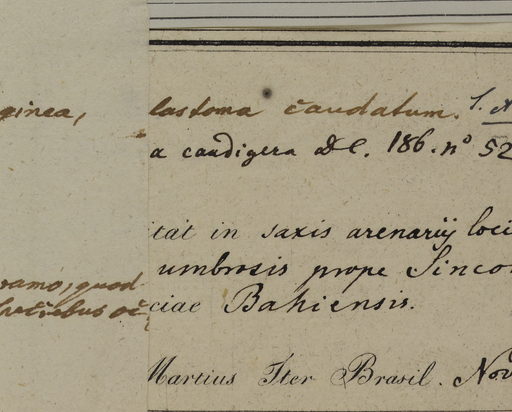 ginea,
ramo, quod
lastoma caudatum.
a caudigera DC. 186. nº 52
tat in saxis arenarij loci
umbrosis prope Sinco
ciae Bahiensis.
Martius Iter Brasil. Nov